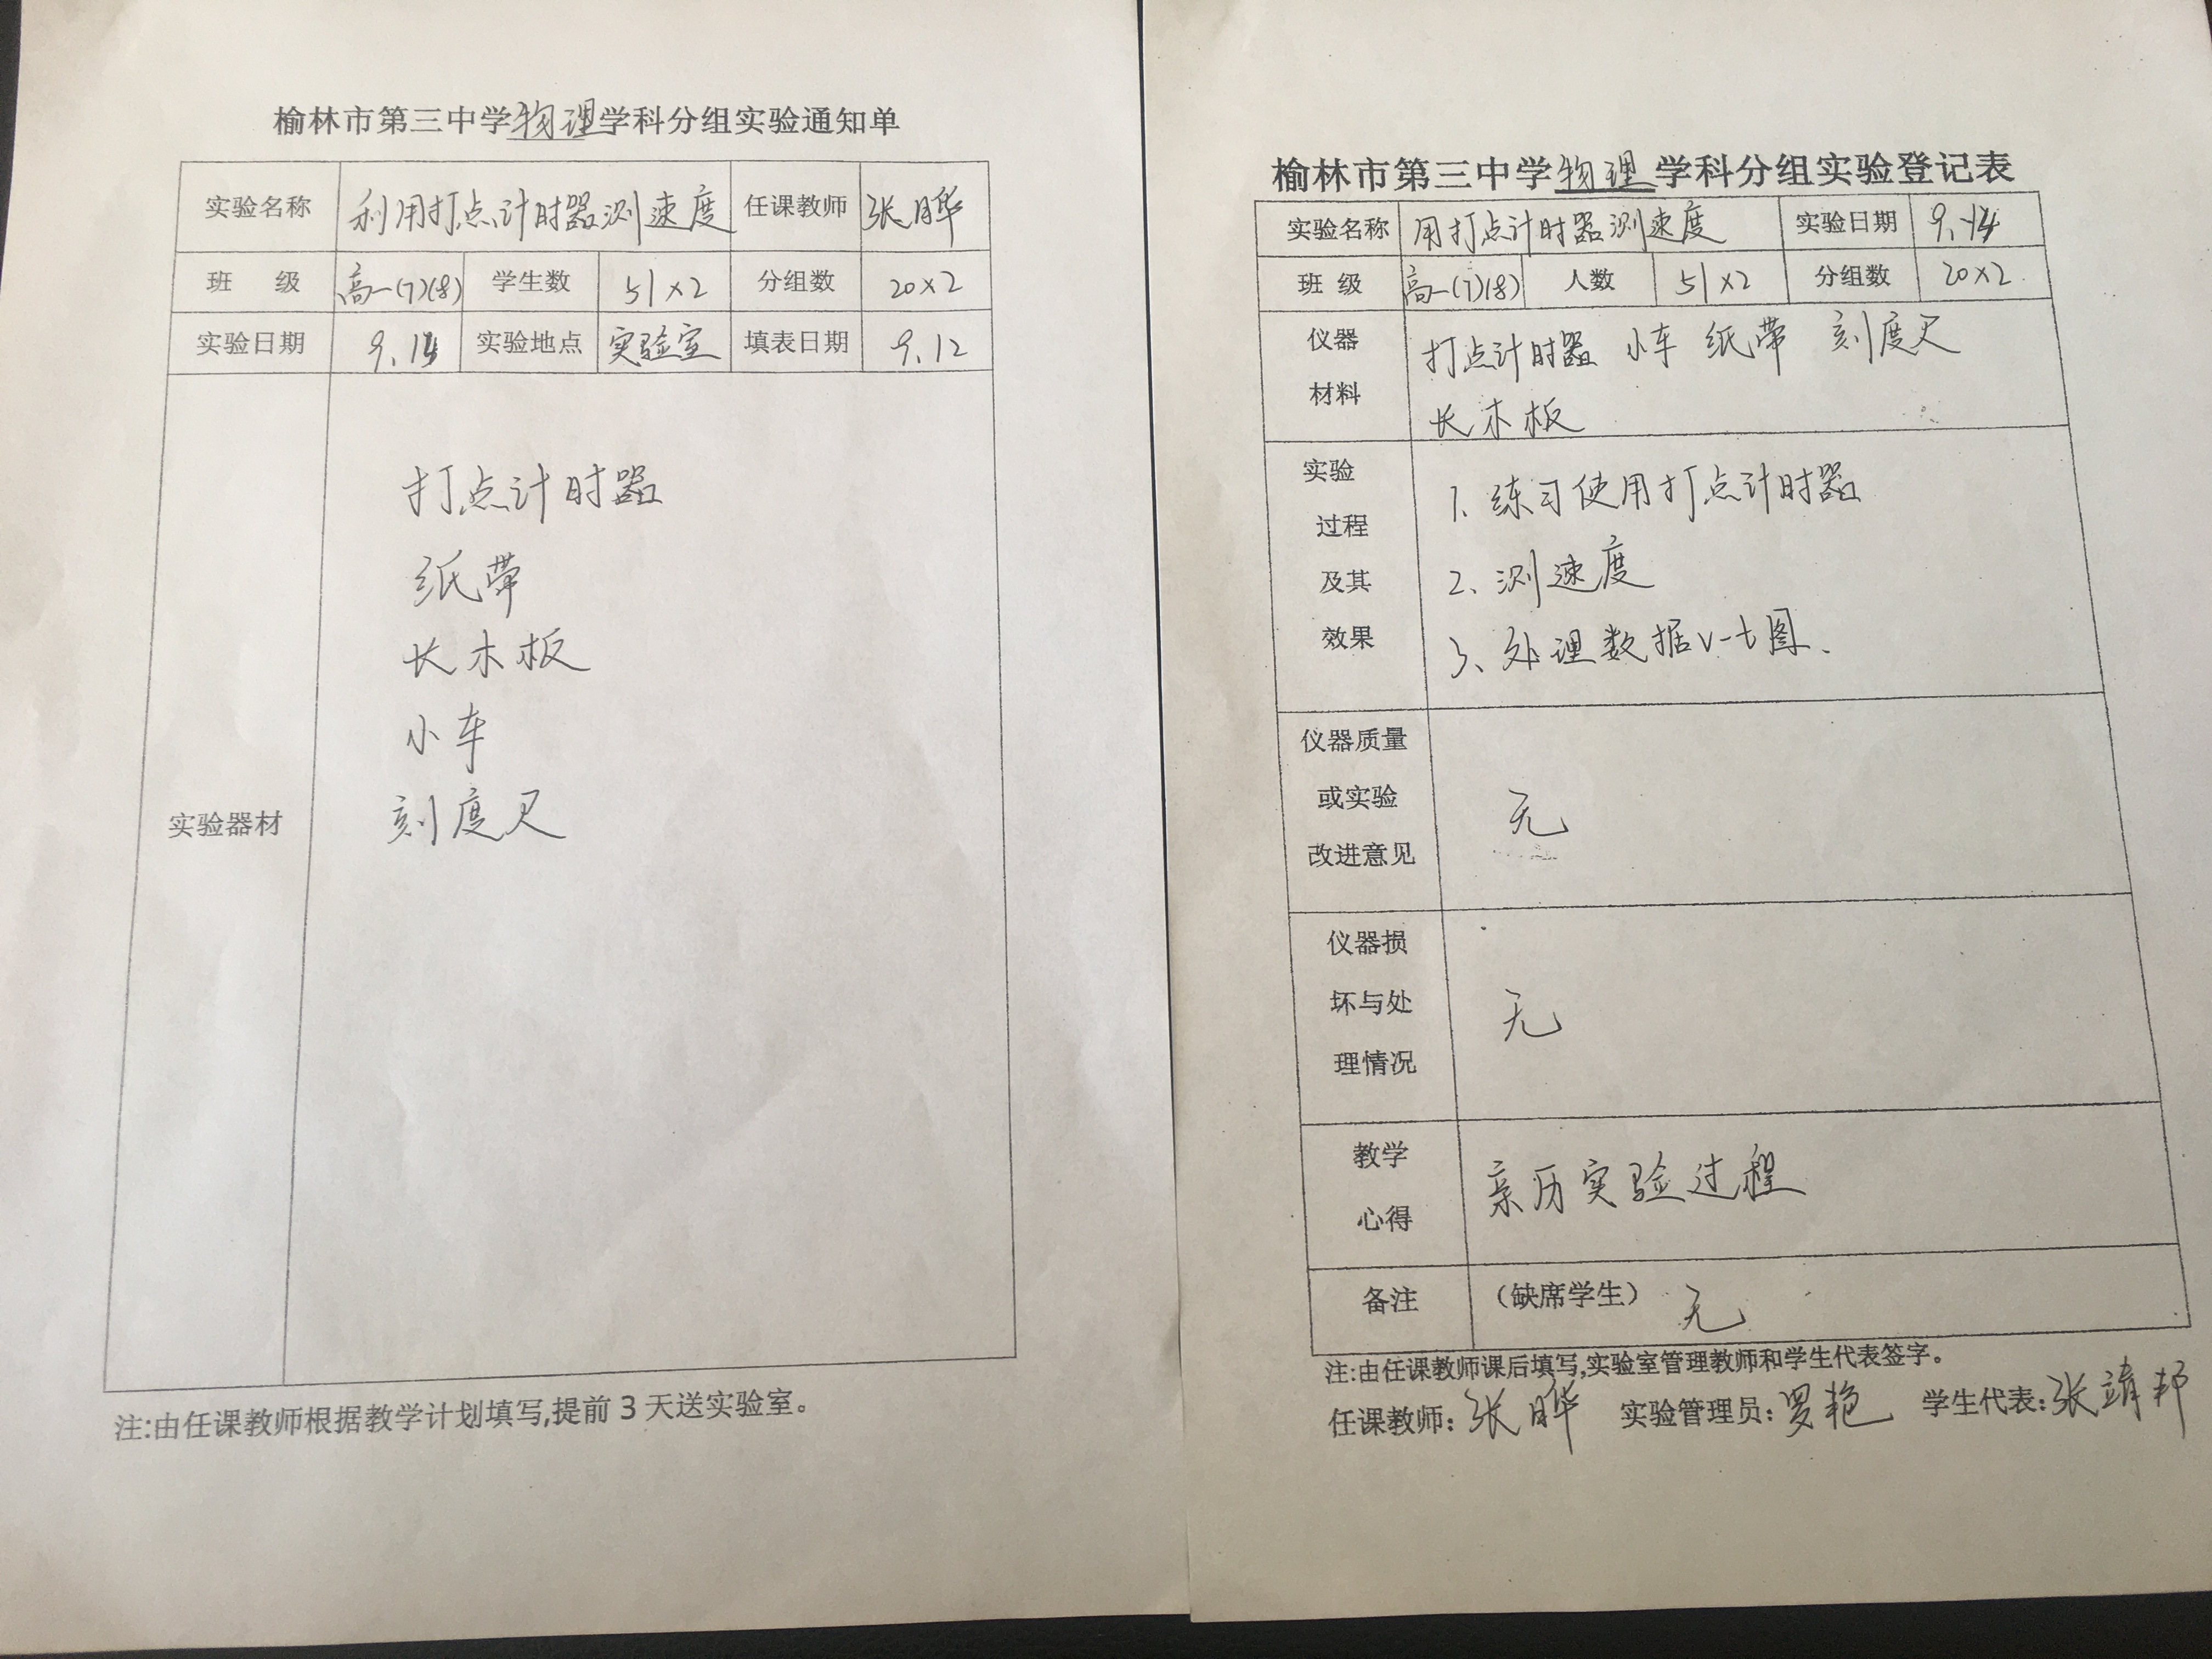 榆林市第三中学物理学科分组实验通知单
实验名称 利用打点计时器测速度 任课教师 张晔
班 级 高一(7)(8) 学生数 51×2 分组数 20×2
实验日期 9.14 实验地点 实验室 填表日期 9.12
实验器材
打点计时器
纸带
长木板
小车
刻度尺
注:由任课教师根据教学计划填写,提前3天送实验室。
榆林市第三中学物理学科分组实验登记表
实验名称 用打点计时器测速度 实验日期 9.14
班 级 高一(7)(8) 人数 51×2 分组数 20×2
仪器
材料
打点计时器 小车 纸带 刻度尺
长木板
实验
过程
及其
效果
1、练习使用打点计时器
2、测速度
3、处理数据v-t图.
仪器质量
或实验
改进意见
无
仪器损
坏与处
理情况
无
教学
心得
亲历实验过程
备注 (缺席学生) 无
注:由任课教师课后填写,实验室管理教师和学生代表签字。
任课教师:张晔 实验管理员:罗艳 学生代表:张靖邦